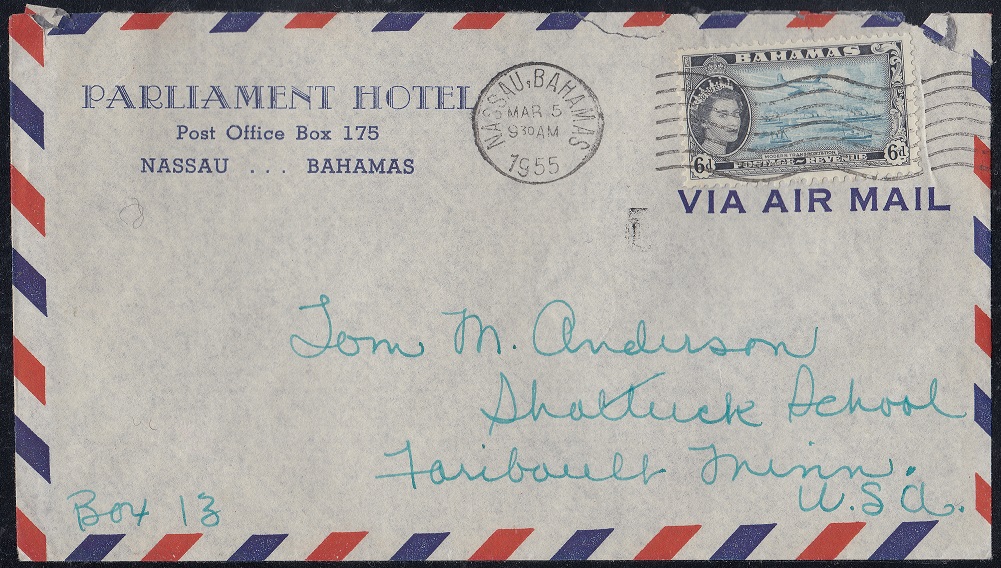 PARLIAMENT HOTEL
Post Office Box 175
NASSAU ... BAHAMAS
NASSAU, BAHAMAS
MAR 5
9 30 AM
1955
BAHAMAS
6d
6d
POSTAGE REVENUE
VIA AIR MAIL
Tom M. Anderson
Shattuck School
Faribault Minn.
U.S.A.
Box 13